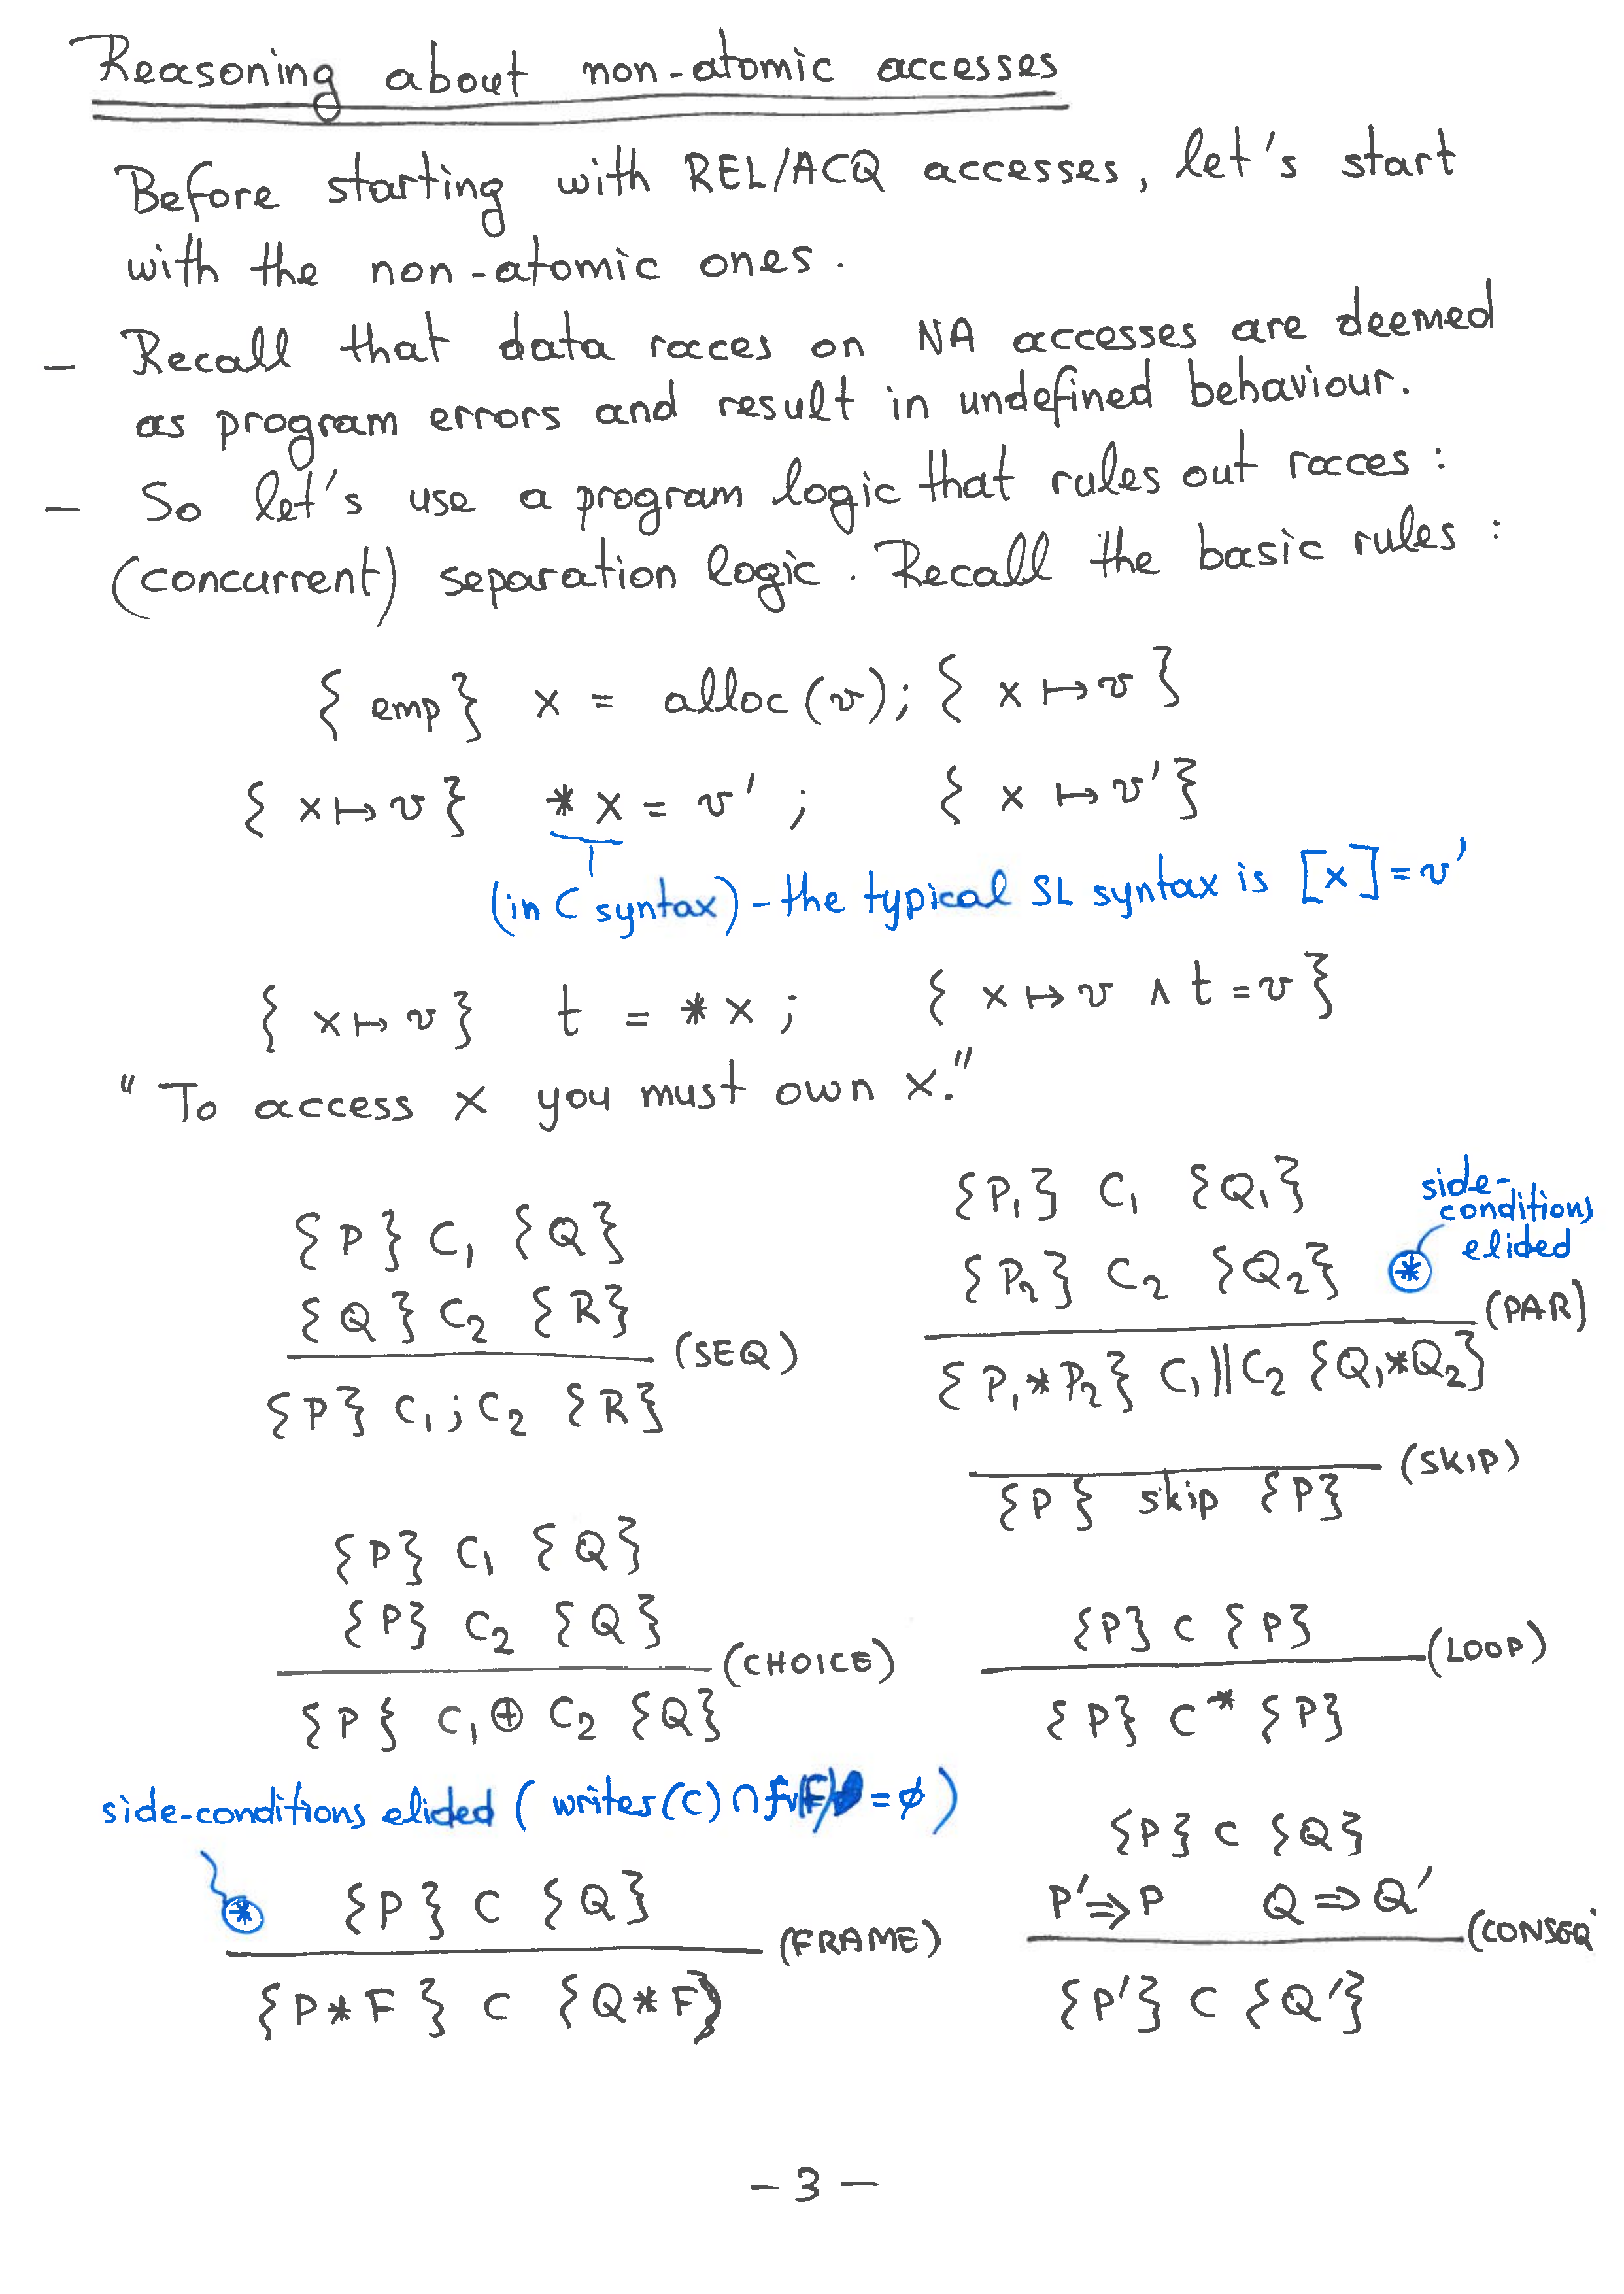 Reasoning about non-atomic accesses
Before starting with REL/ACQ accesses, let's start
with the non-atomic ones.
- Recall that data races on NA accesses are deemed
as program errors and result in undefined behaviour.
- So let's use a program logic that rules out races:
(concurrent) separation logic. Recall the basic rules:
{ emp } x = alloc(v); { x ↦ v }
{ x ↦ v } *x = v' ; { x ↦ v' }
(in C syntax) - the typical SL syntax is [x]=v'
{ x ↦ v } t = *x ; { x ↦ v ∧ t = v }
"To access x you must own x."
{P} C₁ {Q}
{Q} C₂ {R}
(SEQ)
{P} C₁ ; C₂ {R}
{P₁} C₁ {Q₁}
{P₂} C₂ {Q₂} ⊛
side-
conditions
elided
(PAR)
{P₁*P₂} C₁||C₂ {Q₁*Q₂}
(SKIP)
{P} skip {P}
{P} C₁ {Q}
{P} C₂ {Q}
(CHOICE)
{P} C₁ ⊕ C₂ {Q}
{P} C {P}
(LOOP)
{P} C* {P}
side-conditions elided ( writes(C) ∩ fv(F) = ∅ )
⊛ {P} C {Q}
(FRAME)
{P * F} C {Q * F}
{P} C {Q}
P' ⇒ P Q ⇒ Q'
(CONSEQ
{P'} C {Q'}
- 3 -